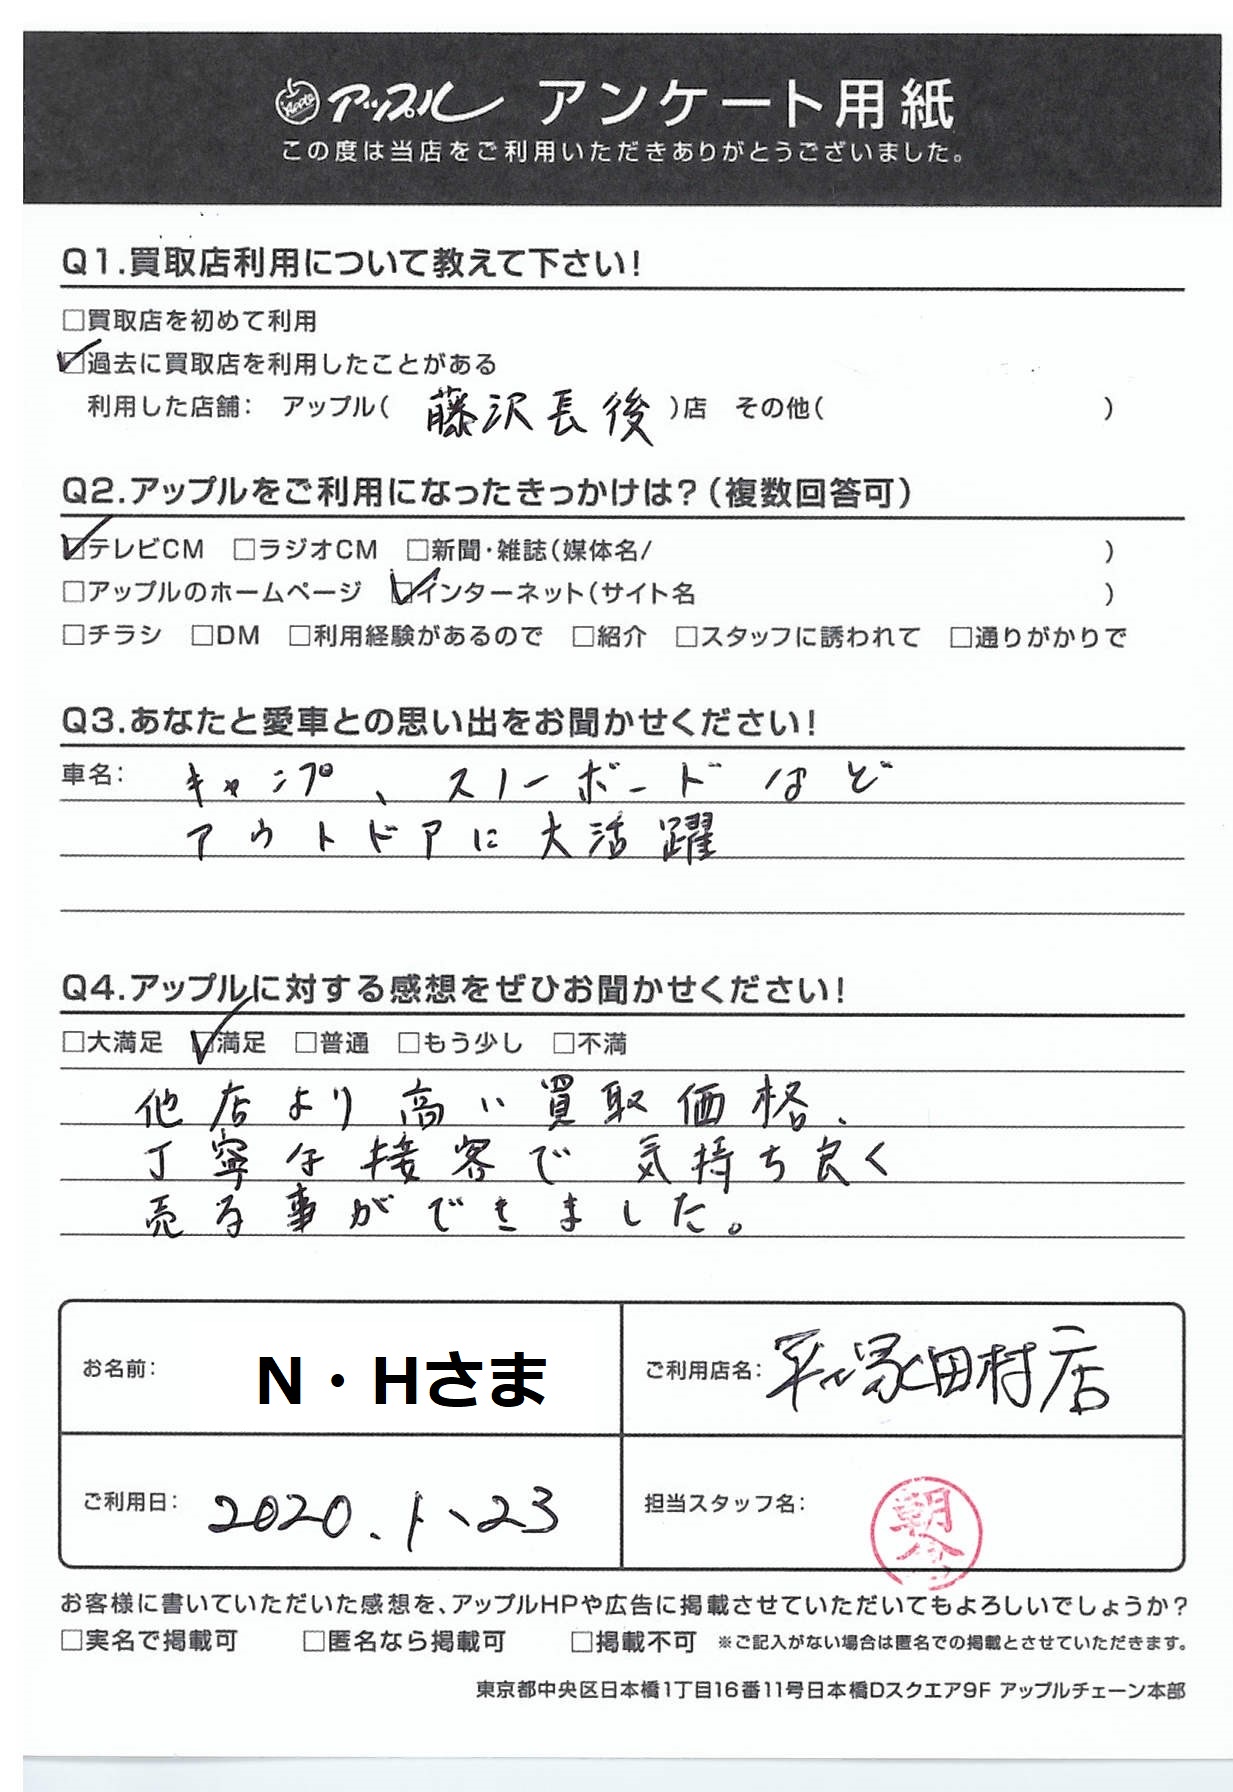 アップル アンケート用紙
この度は当店をご利用いただきありがとうございました。
Q1.買取店利用について教えて下さい!
□買取店を初めて利用
☑過去に買取店を利用したことがある
利用した店舗: アップル(藤沢長後)店 その他( )
Q2.アップルをご利用になったきっかけは?(複数回答可)
☑テレビCM □ラジオCM □新聞・雑誌(媒体名/ )
□アップルのホームページ ☑インターネット(サイト名 )
□チラシ □DM □利用経験があるので □紹介 □スタッフに誘われて □通りがかりで
Q3.あなたと愛車との思い出をお聞かせください!
車名: キャンプ、スノーボードなど
アウトドアに大活躍
Q4.アップルに対する感想をぜひお聞かせください!
□大満足 ☑満足 □普通 □もう少し □不満
他店より高い買取価格、
丁寧な接客で気持ち良く
売る事ができました。
お名前: N・Hさま ご利用店名: 平塚田村店
ご利用日: 2020.1.23 担当スタッフ名: 朝倉
お客様に書いていただいた感想を、アップルHPや広告に掲載させていただいてもよろしいでしょうか?
□実名で掲載可 □匿名なら掲載可 □掲載不可 ※ご記入がない場合は匿名での掲載とさせていただきます。
東京都中央区日本橋1丁目16番11号日本橋Dスクエア9F アップルチェーン本部